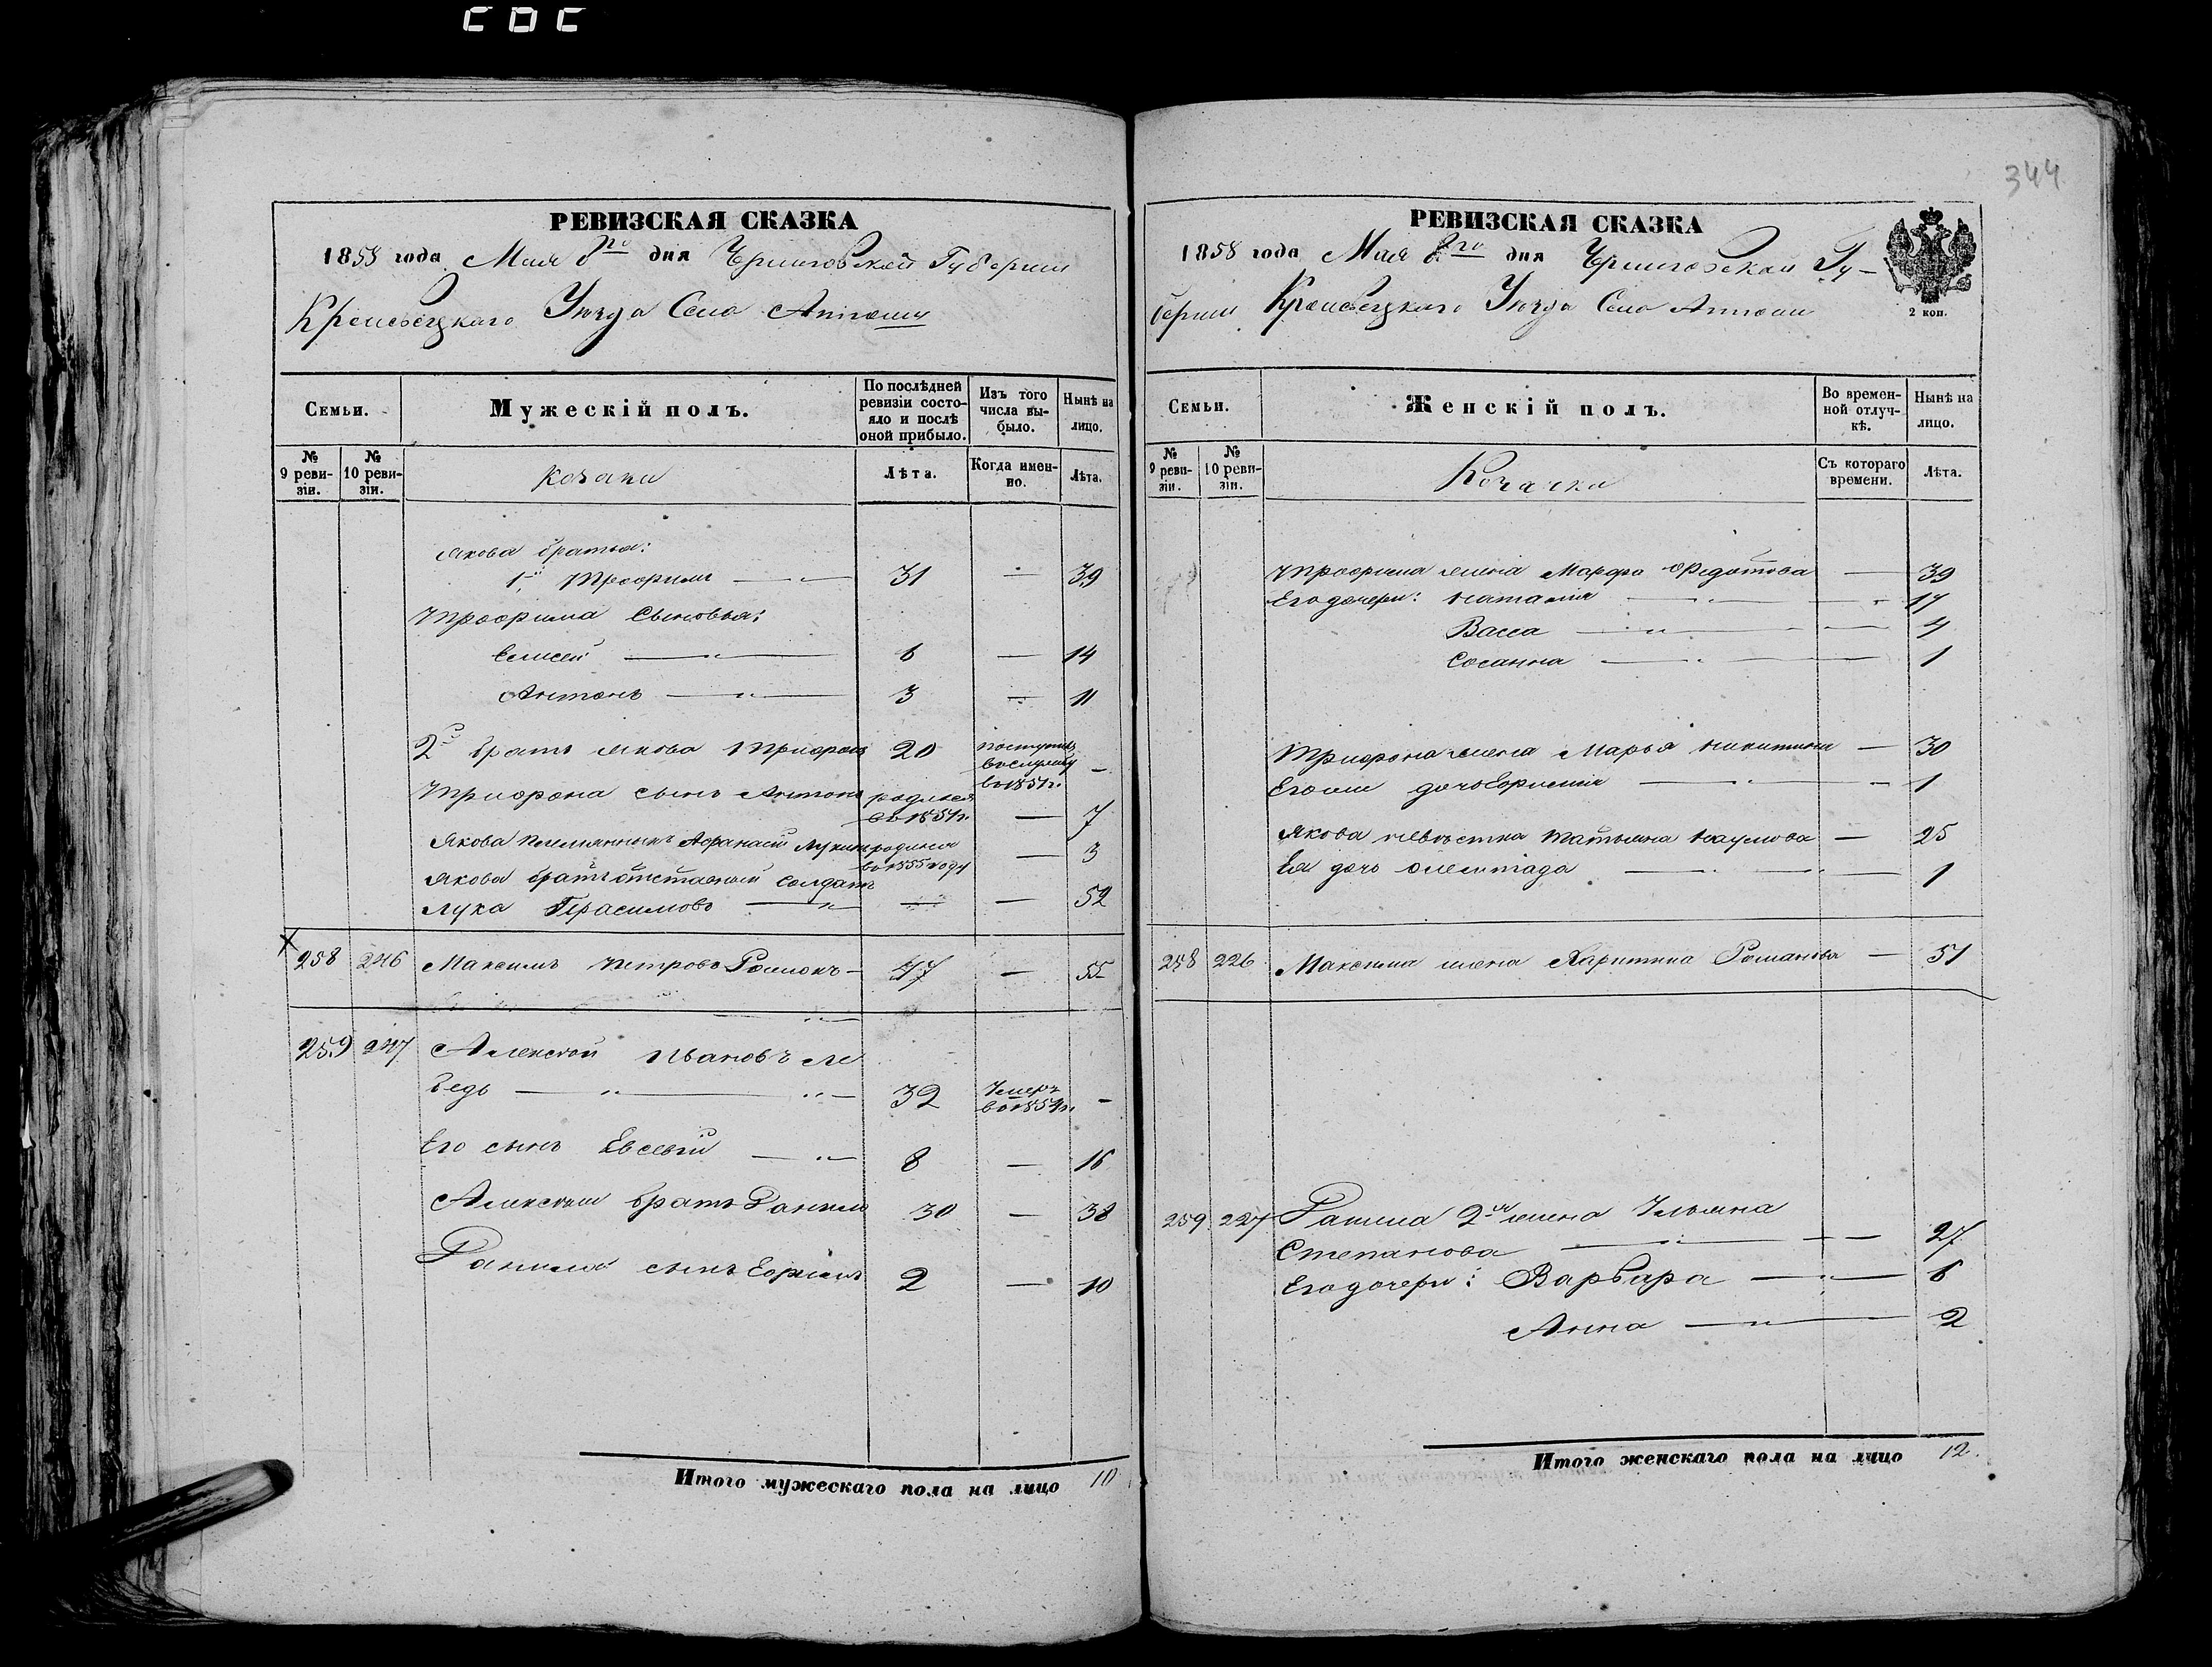 CDC
344
РЕВИЗСКАЯ СКАЗКА
1858 года Мая 8го дня Черниговской Губернии
Кролевецкаго Уезда Села
Семьи.
Мужескій полъ.
По послѣдней ревизіи состо-
яло и послѣ
оной прибыло.
Изъ того
числа вы-
было.
Нынѣ на
лицо.
№
9 реви-
зіи.
№
10 реви-
зіи.
Козаки
Лѣта.
Когда имен-
но.
Лѣта.
Якова братья:
1й, Трофимъ 31 — 39
Трофима Сыновья:
Елисей 6 — 14
Антонъ 3 — 11
2й братъ Якова Трифонъ 20 поступилъ
въ службу
въ 1851г. —
Трифона сынъ Антонъ родился
въ 1851г. — 7
Якова племянникъ Афанасій Лукинъ родился
въ 1855 году — 3
Якова братъ отставный Солдатъ
Лука Герасимовъ — — 52
258 246 Максимъ Петровъ 47 — 55
259 247 Алексѣй Ивановъ Ле
бедь 32 Умеръ
въ 1854г. —
Его сынъ Евсевій 8 — 16
Алексѣя братъ Данило 30 — 38
Данила сынъ Ефимъ 2 — 10
Итого мужескаго пола на лицо 10
РЕВИЗСКАЯ СКАЗКА
1858 года Мая 8го дня Черниговской Гу-
берніи Кролевецкаго Уезда Села
2 коп.
Семьи.
Женскій полъ.
Во времен-
ной отлуч-
кѣ.
Нынѣ на
лицо.
№
9 реви-
зіи.
№
10 реви-
зіи.
Козачки
Съ котораго
времени.
Лѣта.
Трофима жена Марфа Федотова — 39
Его дочери: Наталія — 17
Васса — 4
Сосанна — 1
Трифона жена Марья Никитина — 30
Его же дочь Ефимія — 1
Якова невѣстка Татьяна Наумова — 25
Ея дочь Олемпіада — 1
258 226 Максима жена Харитина Романова — 51
259 227 Данила 2я жена Ульяна
Степанова — 27
Его дочери: Варвара — 6
Анна — 2
Итого женскаго пола на лицо 12.